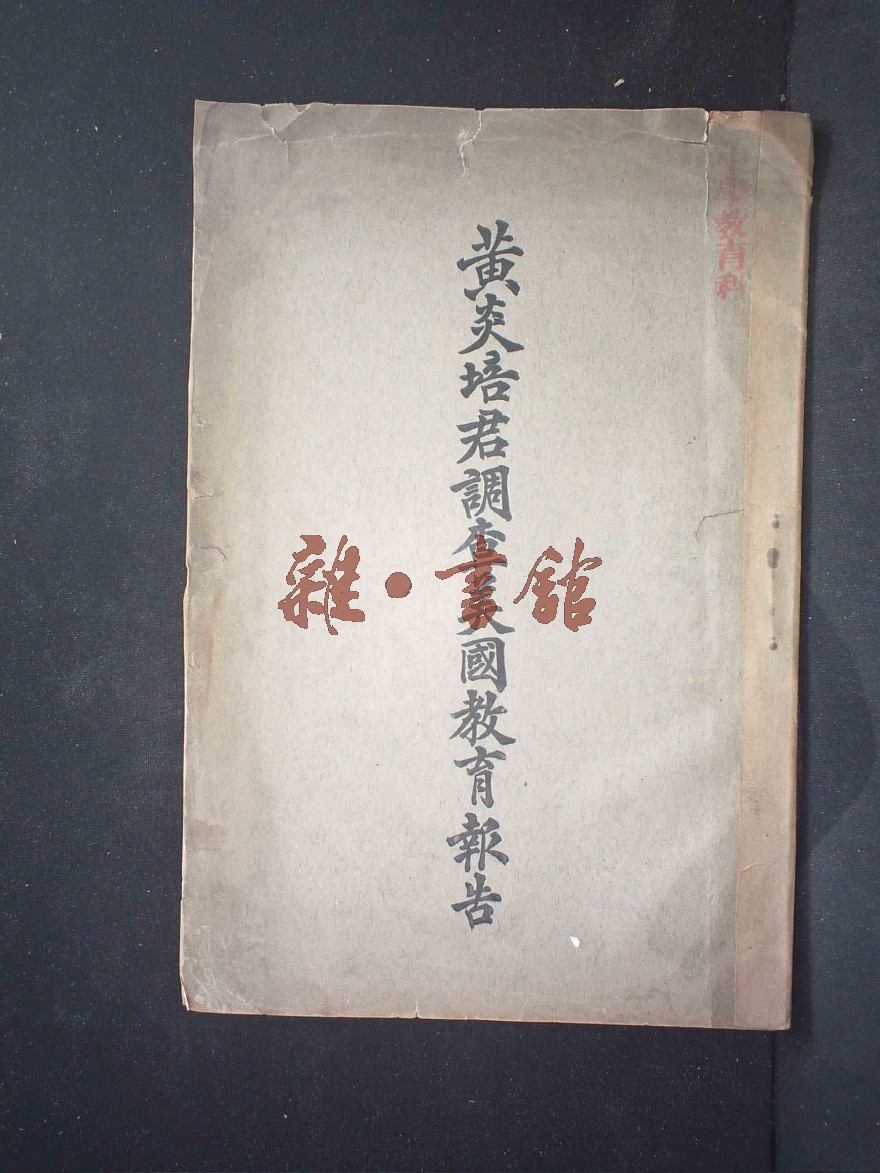 學教育科
黃炎培君調查美國教育報告
雜·書館